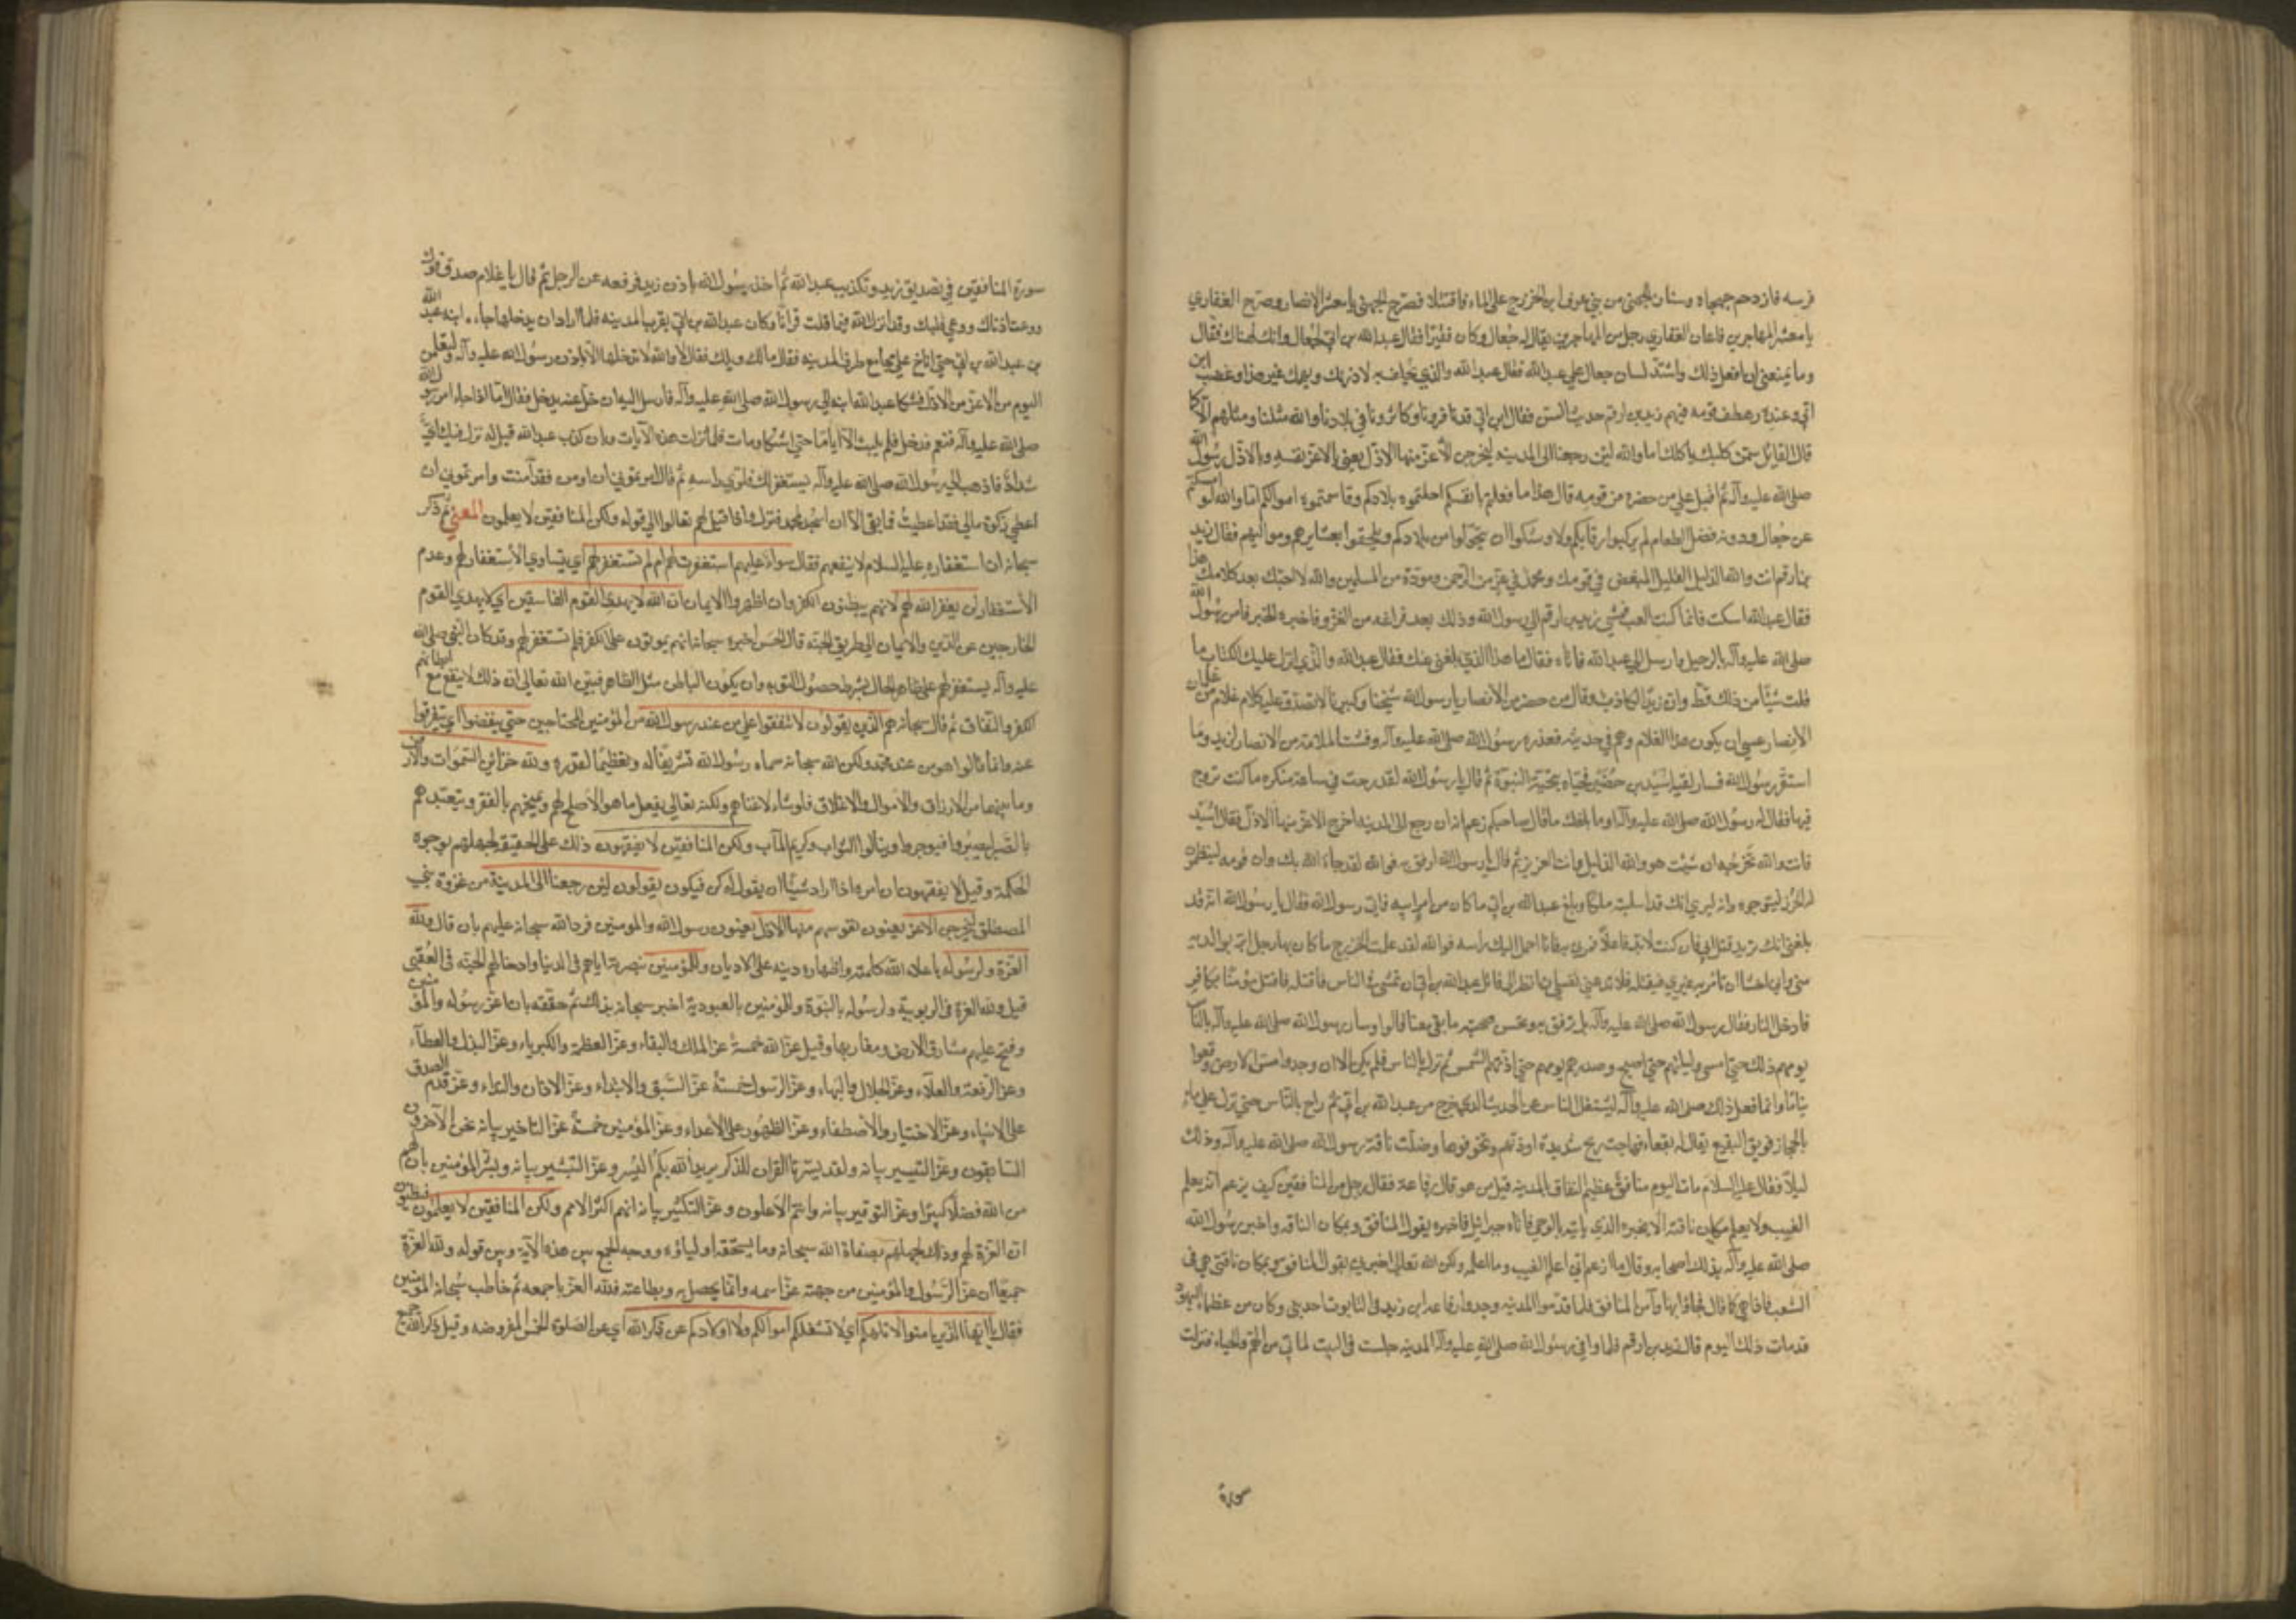 فرسه فازدحم جهجاه وسنان الجهني من بني عوف بن الخزرج على الماء فاقتتلا فصرخ الجهني يا معشر الانصار وصرخ الغفاري
يا معشر المهاجرين فاعان الغفاري رجل من المهاجرين يقال له جعال وكان فقيرا فقال عبدالله بن ابي لجعال وانك لهناك فقال
وما يمنعني ان افعل ذلك واشتد لسان جعال على عبدالله فقال عبدالله والذي يحلف به لاذرنك ويهمك غير هذا وغضب ابن
ابي وعنده رهط من قومه فيهم زيد بن ارقم حديث السن فقال ابن ابي قد نافرونا وكاثرونا في بلادنا والله مثلنا ومثلهم الا كما
قال القائل سمن كلبك ياكلك اما والله لئن رجعنا الى المدينه ليخرجن الاعز منها الاذل يعني بالاعز نفسه وبالاذل رسول الله
صلى الله عليه وآله ثم اقبل على من حضره من قومه قال هذا ما فعلتم بانفسكم احللتموه بلادكم وقاسمتموه اموالكم اما والله لو امسكتم
عن جعال وذويه فضل الطعام لم يركبوا رقابكم ولاوشكوا ان يتحولوا من بلادكم ويلحقوا بعشايرهم ومواليهم فقال زيد
بن ارقم انت والله الذليل القليل المبغض في قومك ومحمد في عز من الرحمن ومودة من المسلمين والله لا احبك بعد كلامك هذا
فقال عبدالله اسكت فانما كنت العب فمشى زيد بن ارقم الى رسول الله وذلك بعد فراغه من الغزو فاخبره الخبر فامر رسول الله
صلى الله عليه وآله بالرحيل وارسل الى عبدالله فاتاه فقال ما هذا الذي بلغني عنك فقال عبدالله والذي انزل عليك الكتاب ما
قلت شيئا من ذلك قط وان زيدا لكاذب وقال من حضر من الانصار يا رسول الله شيخنا وكبيرنا لا تصدق عليه كلام غلام من غلمان
الانصار عسى ان يكون هذا الغلام وهم في حديثه فعذره رسول الله صلى الله عليه وآله وفشت الملامة من الانصار لزيد ولما
استقر رسول الله فسار لقيه اسيد بن حضير فحياه بتحية النبوة ثم قال يا رسول الله لقد رحت في ساعة منكره ما كنت تروح
فيها فقال له رسول الله صلى الله عليه وآله اوما بلغك ما قال صاحبكم زعم انه ان رجع الى المدينه اخرج الاعز منها الاذل فقال اسيد
فانت والله تخرجه ان شئت هو والله الذليل وانت العزيز ثم قال يا رسول الله ارفق به فوالله لقد جاء الله بك وان قومه لينظمون
له الخرز ليتوجوه وانه ليرى انك قد استلبته ملكا وبلغ عبدالله بن عبدالله بن ابي ما كان من امر ابيه فاتى رسول الله فقال يا رسول الله انه قد
بلغني انك تريد قتل ابي فان كنت لا بد فاعلا فمرني به فانا احمل اليك راسه فوالله لقد علمت الخزرج ما كان بها رجل ابر بوالديه
مني واني اخشى ان تامر به غيري فيقتله فلا تدعني نفسي ان انظر الى قاتل عبدالله بن ابي ان يمشي في الناس فاقتله فاقتل مؤمنا بكافر
فادخل النار فقال رسول الله صلى الله عليه وآله بل ترفق به ونحسن صحبته ما بقي معنا قالوا وسار رسول الله صلى الله عليه وآله بالناس
يومهم ذلك حتى امسى وليلتهم حتى اصبح وصدر يومهم حتى اذتهم الشمس ثم نزل بالناس فلم يكن الا ان وجدوا مس الارض وقعوا
نياما وانما فعل ذلك صلى الله عليه وآله ليشغل الناس عن الحديث الذي خرج من عبدالله بن ابي ثم راح بالناس حتى نزل على ماء
بالحجاز فويق البقيع يقال له بقعاء فهاجت ريح شديدة اوذتهم وتخوفوها وضلت ناقة رسول الله صلى الله عليه وآله وذلك
ليلا فقال عليه السلام مات اليوم منافق عظيم النفاق بالمدينه قيل من هو قال رفاعة فقال رجل من المنافقين كيف يزعم انه يعلم
الغيب ولا يعلم مكان ناقته الا يخبره الذي ياتيه بالوحي فاتاه جبرائيل فاخبره بقول المنافق وبمكان الناقه واخبر رسول الله
صلى الله عليه وآله بذلك اصحابه وقال ما ازعم اني اعلم الغيب وما اعلمه ولكن الله تعالى اخبرني بقول المنافق وبمكان ناقتي هي في
الشعب فاذا هي كما قال فجاؤا بها وآمن المنافق فلما قدموا المدينه وجدوا رفاعه بن زيد في التابوت احد بني وكان من عظماء اليهود
قد مات ذلك اليوم قال زيد بن ارقم فلما وافى رسول الله صلى الله عليه وآله المدينه جلست في البيت لما بي من الهم والحياء فنزلت
سورة
سورة المنافقين في تصديق زيد وتكذيب عبدالله ثم اخذ رسول الله باذن زيد فرفعه عن الرحل ثم قال يا غلام صدق فوك
ووعت اذناك ووعى قلبك وقد انزل الله فيما قلت قرانا وكان عبدالله بن ابي بقرب المدينه فلما اراد ان يدخلها جاءه ابنه عبد الله
بن عبدالله بن ابي حتى اناخ على مجامع طرق المدينه فقال مالك ويلك فقال لا والله لا تدخلها الا باذن رسول الله عليه وآله ولتعلمن
اليوم من الاعز من الاذل فشكا عبدالله ابنه الى رسول الله صلى الله عليه وآله فارسل اليه ان خل عنه يدخل فقال اما اذا جاء امر رسول الله
صلى الله عليه وآله فنعم فدخل فلم يلبث الا اياما حتى اشتكى ومات فلما نزلت هذه الآيات وبان كذب عبدالله قيل له نزل فيك آي
شداد فاذهب الى رسول الله صلى الله عليه وآله يستغفر لك فلوى راسه ثم قال امرتموني ان اومن فقد آمنت وامرتموني ان
اعطي زكوة مالي فقد اعطيت فما بقي الا ان اسجد لمحمد فنزل واذا قيل لهم تعالوا الى قوله ولكن المنافقين لا يعلمون المعنى ثم ذكر
سبحانه ان استغفاره عليه السلام لا ينفعهم فقال سواء عليهم استغفرت لهم ام لم تستغفر لهم اي يتساوى الاستغفار لهم وعدم
الاستغفار لن يغفر الله لهم لانهم يبطنون الكفر وان اظهروا الايمان ان الله لا يهدي القوم الفاسقين اي لا يهدي القوم
الخارجين عن الدين والايمان الى طريق الجنة قال الحسن اخبره سبحانه انهم يموتون على الكفر فلم تستغفر لهم وقد كان النبي صلى الله
عليه وآله يستغفر لهم على ظاهر الحال بشرط حصول التوبه وان يكون الباطن مثل الظاهر فبين الله تعالى ان ذلك لا ينفع مع ابطانهم
الكفر والنفاق ثم قال سبحانه هم الذين يقولون لا تنفقوا على من عند رسول الله من المؤمنين المحتاجين حتى ينفضوا اي يتفرقوا
عنه وانما قالوا هو من عند محمد ولكن الله سبحانه سماه رسول الله تشريفا له وتعظيما لقدره ولله خزائن السموات والارض
وما بينهما من الارزاق والاموال والاعلاق فلو شاء لاغناهم ولكنه تعالى يفعل ما هو الاصلح لهم ويمتحنهم بالفقر ويتعبدهم
بالصبر ليصبروا فيوجروا وينالوا الثواب وكريم المآب ولكن المنافقين لا يفقهون ذلك على الحقيقة لجهلهم بوجوه
الحكمة وقيل لا يفقهون ان امره اذا اراد شيئا ان يقول له كن فيكون يقولون لئن رجعنا الى المدينة من غزوة بني
المصطلق ليخرجن الاعز يعنون نفوسهم منها الاذل يعنون رسول الله والمومنين فرد الله سبحانه عليهم بان قال ولله
العزة ولرسوله باعلاء الله كلمته واظهاره دينه على الاديان وللمؤمنين بنصرته اياهم في الدنيا وادخالهم الجنة في العقبى
قيل ولله العزة في الربوبية ولرسوله بالنبوة وللمؤمنين بالعبودية اخبر سبحانه بذلك ثم حققه بان اعز رسوله والمؤمنين
وفتح عليهم مشارق الارض ومغاربها وقيل عز الله خمسة عز الملك والبقاء وعز العظمة والكبرياء وعز البذل والعطاء
وعز الرفعة والعلاء وعز الجلال والبهاء وعز الرسول خمسة عز السبق والابتداء وعز الاذان والنداء وعز قدم الصدق
على الانبياء وعز الاختيار والاصطفاء وعز الظهور على الاعداء وعز المؤمنين خمسة عز التاخير بيانه نحن الآخرون
السابقون وعز التيسير بيانه ولقد يسرنا القران للذكر يريد الله بكم اليسر وعز التبشير بيانه وبشر المؤمنين بان لهم
من الله فضلا كبيرا وعز التوقير بيانه وانتم الاعلون وعز التكثير بيانه انهم اكثر الامم ولكن المنافقين لا يعلمون فيظنون
ان العزة لهم وذلك لجهلهم بصفاة الله سبحانه وما يستحقه اولياؤه ووجه الجمع بين هذه الآية وبين قوله ولله العزة
جميعا ان عز الرسول والمؤمنين من جهته عز اسمه وانما يحصل به وبطاعته فلله العز باجمعه ثم خاطب سبحانه المؤمنين
فقال يا ايها الذين امنوا لا تلهكم اي لا تشغلكم اموالكم ولا اولادكم عن ذكر الله اي عن الصلوة الخمس المفروضه وقيل ذكر الله جميع